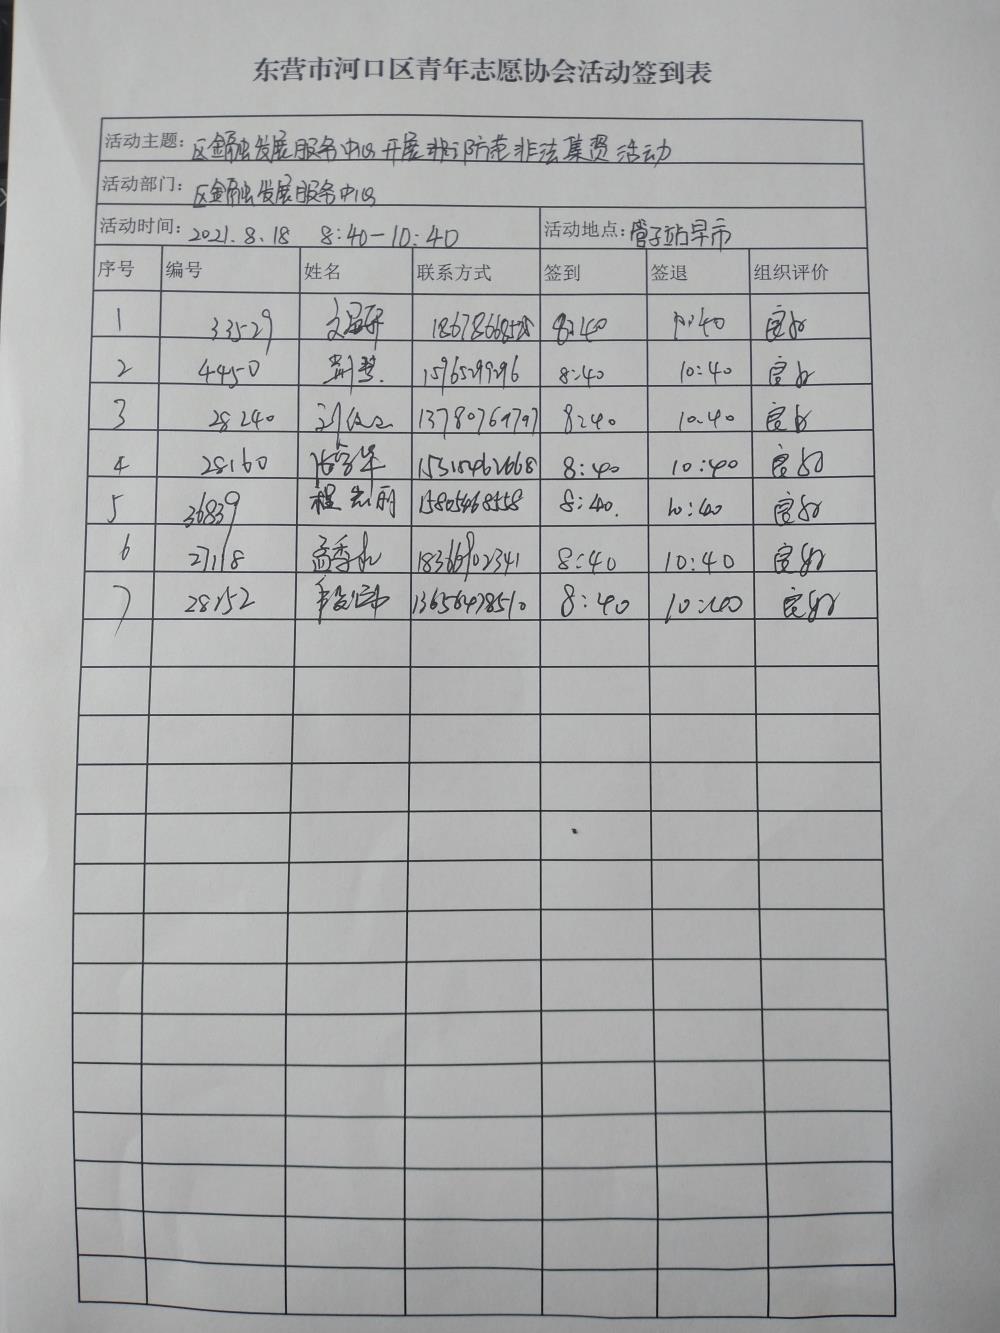 东营市河口区青年志愿协会活动签到表
活动主题: 区金融发展服务中心开展 防范非法集资活动
活动部门: 区金融发展服务中心
活动时间: 2021.8.18 8:40-10:40 活动地点: 管子站早市
序号 编号 姓名 联系方式 签到 签退 组织评价
1 33529 8:40 10:40 良好
2 4450 15965299296 8:40 10:40 良好
3 28240 13780769797 8:40 10:40 良好
4 28160 15315462668 8:40 10:40 良好
5 36839 程志丽 15805468558 8:40. 10:40 良好
6 27118 孟季永 18366902341 8:40 10:40 良好
7 28152 13656478510 8:40 10:40 良好